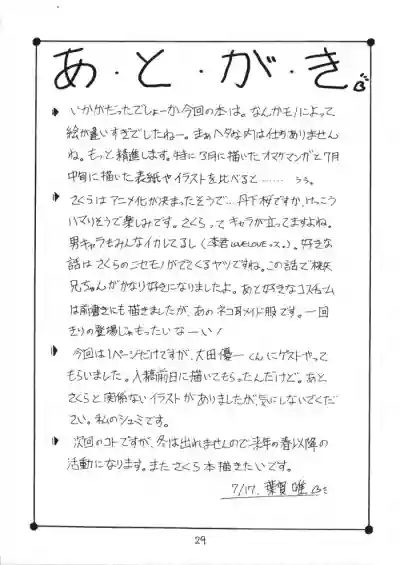 あ・と・が・き
いかがだったでしょーか今回の本は。なんかモノによって
絵が違いすぎでしたねー。まぁヘタな内は仕方ありません
ね。もっと精進します。特に3月に描いたオマケマンガと7月
中旬に描いた表紙やイラストを比べると…… うぅ。
さくらはアニメ化が決まったそうで…丹下桜ですか、けっこう
ハマりそうで楽しみです。さくらってキャラが立ってますよね。
男キャラもみんなイカしてるし(李君LOVELOVEっス。)。好きな
話はさくらのニセモノがでてくるヤツですね。この話で桃矢
兄ちゃんがかなり好きになりましたよ。あと好きなコスチューム
は前書きにも描きましたが、あのネコ耳メイド服です。一回
きりの登場じゃもったいなーい!
今回は1ページだけですが、大田優一くんにゲストやって
もらいました。入稿前日に描いてもらったんだけど。あと
さくらと関係ないイラストがありましたが気にしないでくだ
さい。私のシュミです。
次回のコトですが、冬は出れませんので来年の春以降の
活動になります。またさくら本描きたいです。
7/17. 葉賀 唯
29